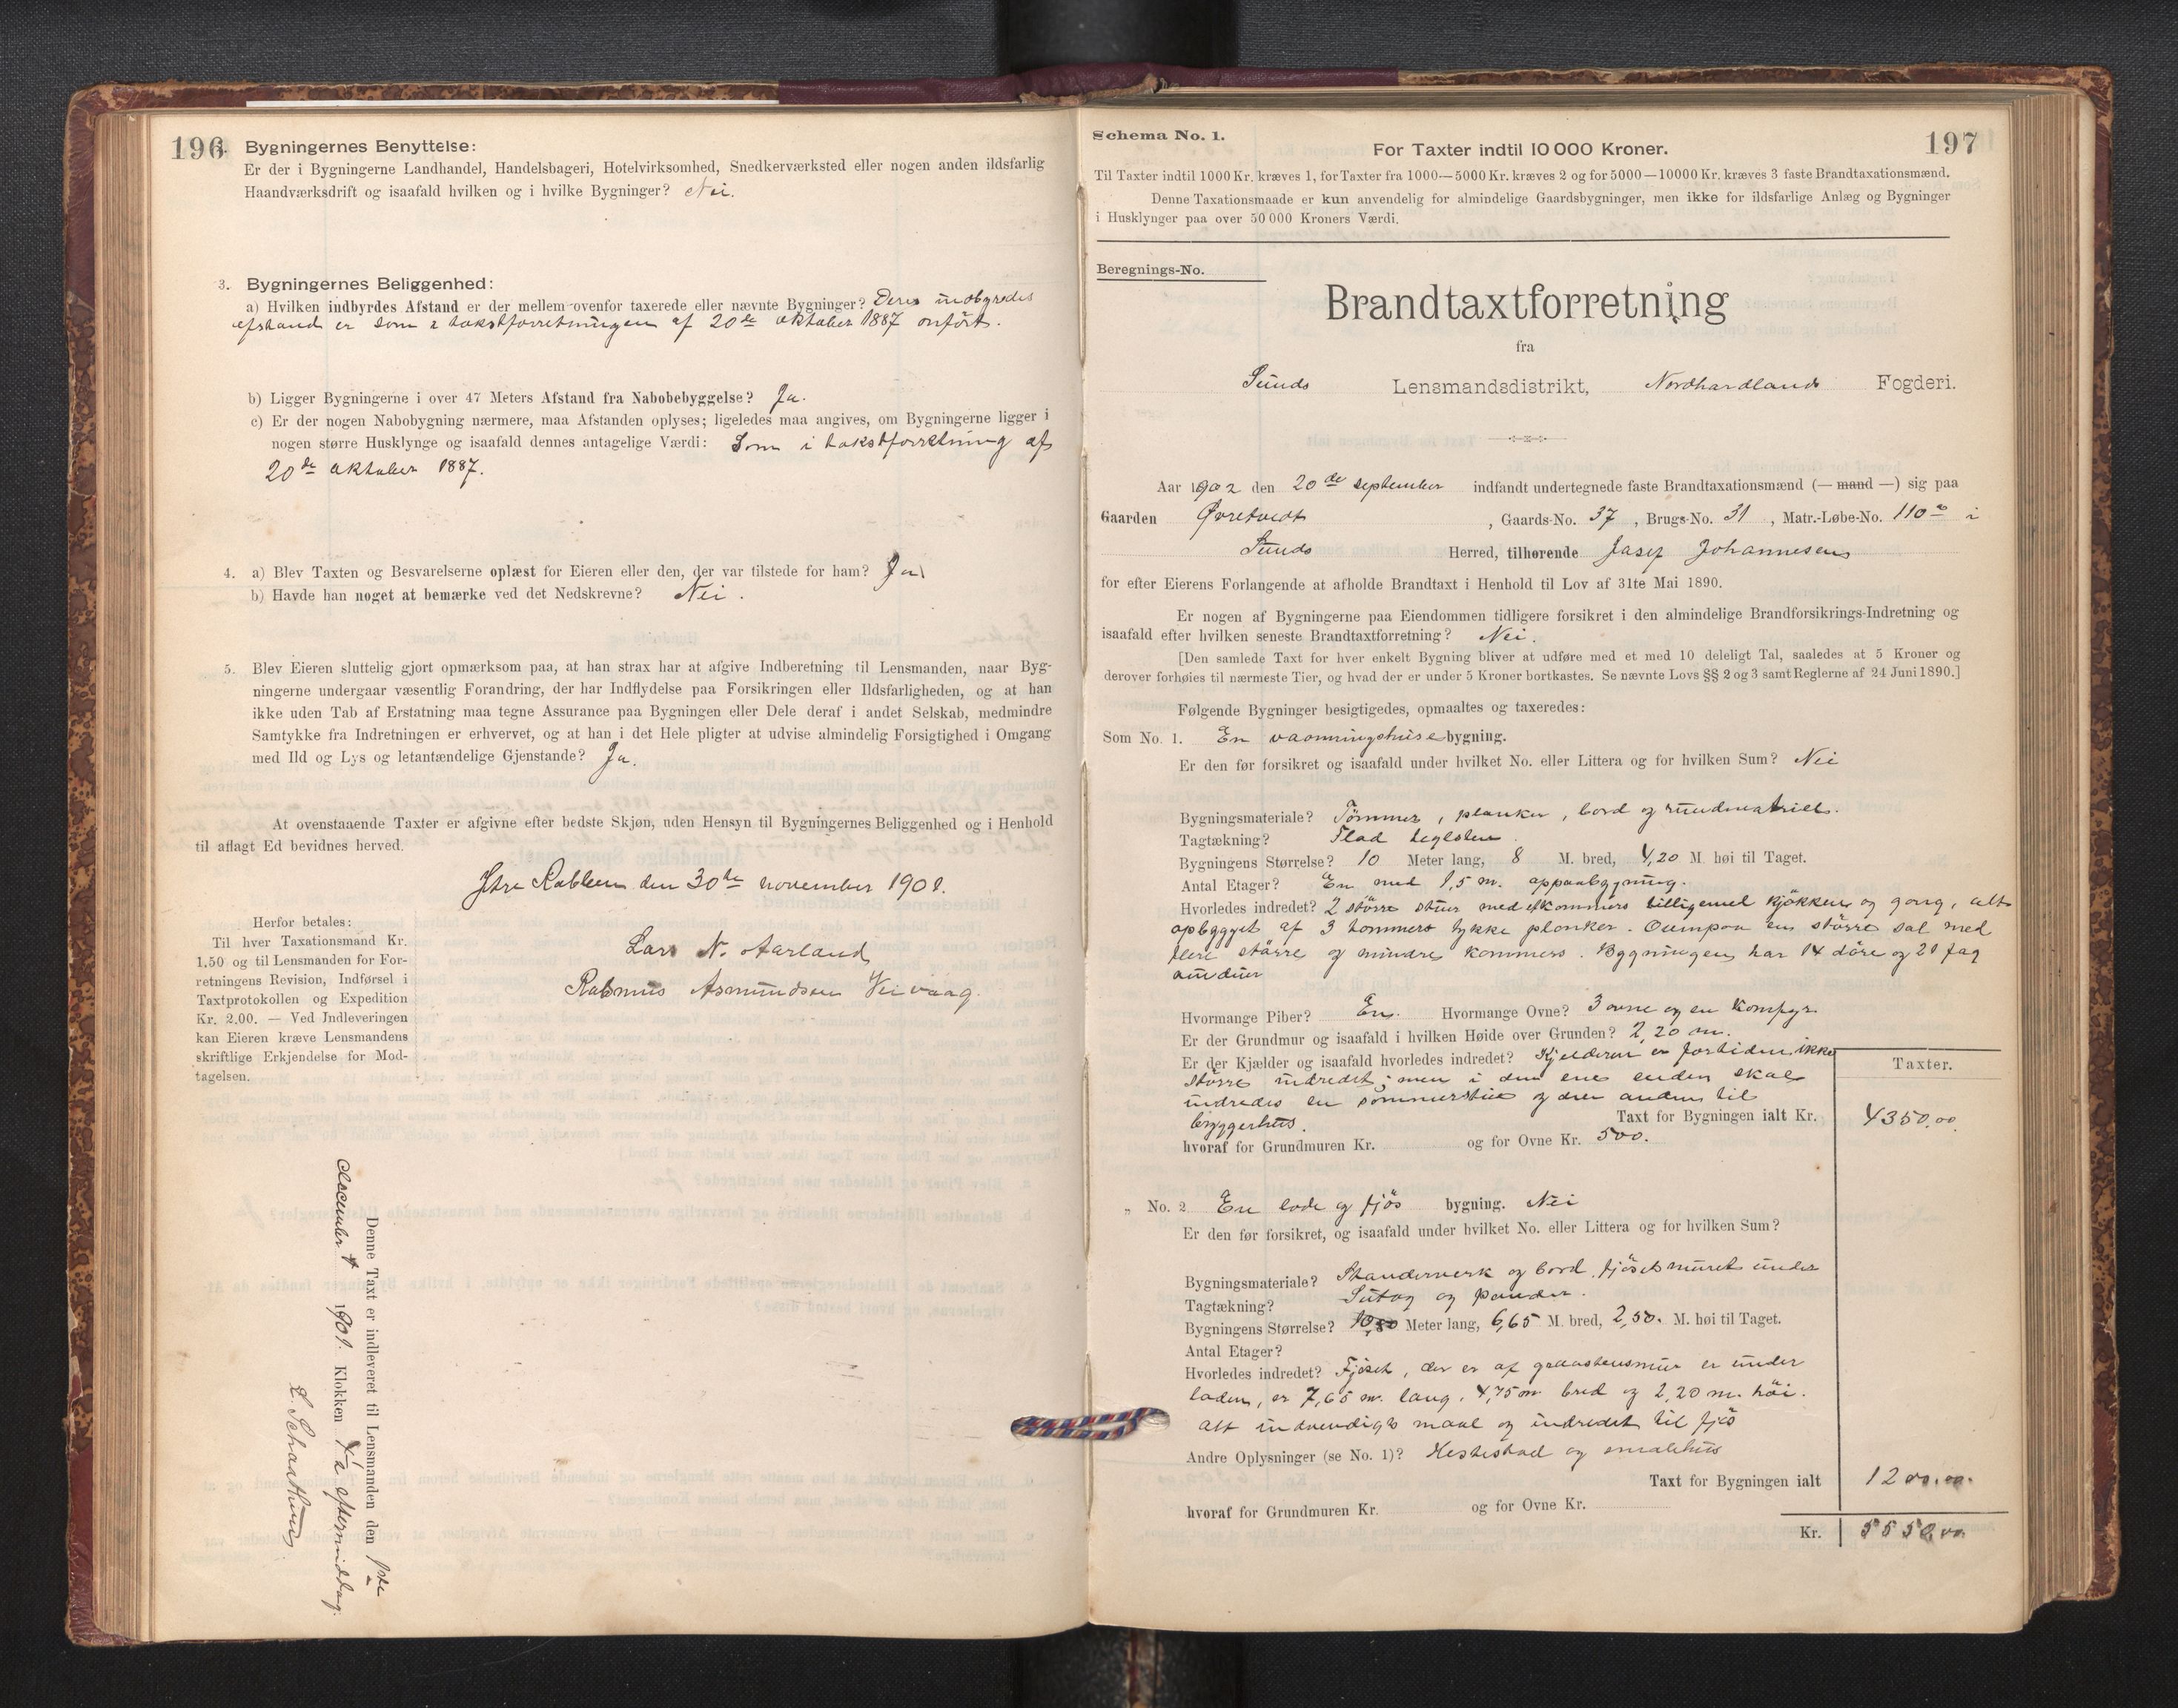 196
2. Bygningernes Benyttelse:
Er der i Bygningerne Landhandel, Handelsbageri, Hotelvirksomhed, Snedkerværksted eller nogen anden ildsfarlig
Haandværksdrift og isaafald hvilken og i hvilke Bygninger? Nei.
3. Bygningernes Beliggenhed:
a) Hvilken indbyrdes Afstand er der mellem ovenfor taxerede eller nævnte Bygninger? Deres indbyrdes
afstand er som i takstforretningen af 20de oktober 1887 anført.
b) Ligger Bygningerne i over 47 Meters Afstand fra Nabobebyggelse? Ja.
c) Er der nogen Nabobygning nærmere, maa Afstanden oplyses; ligeledes maa angives, om Bygningerne ligger i
nogen større Husklynge og isaafald dennes antagelige Værdi: Som i takstforretning af
20de oktober 1887.
4. a) Blev Taxten og Besvarelserne oplæst for Eieren eller den, der var tilstede for ham? Ja
b) Havde han noget at bemærke ved det Nedskrevne? Nei.
5. Blev Eieren sluttelig gjort opmærksom paa, at han strax har at afgive Indberetning til Lensmanden, naar Byg-
ningerne undergaar væsentlig Forandring, der har Indflydelse paa Forsikringen eller Ildsfarligheden, og at han
ikke uden Tab af Erstatning maa tegne Assurance paa Bygningen eller Dele deraf i andet Selskab, medmindre
Samtykke fra Indretningen er erhvervet, og at han i det Hele pligter at udvise almindelig Forsigtighed i Omgang
med Ild og Lys og letantændelige Gjenstande? Ja.
At ovenstaaende Taxter er afgivne efter bedste Skjøn, uden Hensyn til Bygningernes Beliggenhed og i Henhold
til aflagt Ed bevidnes herved.
den 30te november 1901.
Lars N. Aarland
Rasmus Asmundsen Veivaag.
Herfor betales:
Til hver Taxationsmand Kr.
1.50 og til Lensmanden for For-
retningens Revision, Indførsel i
Taxtprotokollen og Expedition
Kr. 2.00. — Ved Indleveringen
kan Eieren kræve Lensmandens
skriftlige Erkjendelse for Mod-
tagelsen.
Denne Taxt er indleveret til Lensmanden den 1ste
december 1901. Klokken 4 1/2 eftermiddag.
197
Schema No. 1.
For Taxter indtil 10 000 Kroner.
Til Taxter indtil 1000 Kr. kræves 1, for Taxter fra 1000—5000 Kr. kræves 2 og for 5000—10000 Kr. kræves 3 faste Brandtaxationsmænd.
Denne Taxationsmaade er kun anvendelig for almindelige Gaardsbygninger, men ikke for ildsfarlige Anlæg og Bygninger
i Husklynger paa over 50 000 Kroners Værdi.
Beregnings-No.
Brandtaxtforretning
fra
Sunds Lensmandsdistrikt, Nordhordlands Fogderi.
Aar 1902 den 20de september indfandt undertegnede faste Brandtaxationsmænd (— mand —) sig paa
Gaarden Øvretvedt, Gaards-No. 37, Brugs-No. 31, Matr.-Løbe-No. 110 i
Sunds Herred, tilhørende Josef Johannesen
for efter Eierens Forlangende at afholde Brandtaxt i Henhold til Lov af 31te Mai 1890.
Er nogen af Bygningerne paa Eiendommen tidligere forsikret i den almindelige Brandforsikrings-Indretning og
isaafald efter hvilken seneste Brandtaxtforretning? Nei.
[Den samlede Taxt for hver enkelt Bygning bliver at udføre med et med 10 deleligt Tal, saaledes at 5 Kroner og
derover forhøies til nærmeste Tier, og hvad der er under 5 Kroner bortkastes. Se nævnte Lovs §§ 2 og 3 samt Reglerne af 24 Juni 1890.]
Følgende Bygninger besigtigedes, opmaaltes og taxeredes:
Som No. 1. En vaaningshuse bygning.
Er den før forsikret og isaafald under hvilket No. eller Littera og for hvilken Sum? Nei
Bygningsmateriale? Tømmer, planker, bord og
Tagtækning? Flad teglsten.
Bygningens Størrelse? 10 Meter lang, 8 M. bred, 4,20 M. høi til Taget.
Antal Etager? En med 1,5 m. oppaabygning.
Hvorledes indredet? 2 større stuer med kammers tilligemed kjøkken og gang, alt
opbygget af 3 tommers tykke planker. Ovenpaa en større sal med
flere større og mindre kammers. Bygningen har 14 døre og 21 fag
vinduer
Hvormange Piber? En. Hvormange Ovne? 3 ovne og en komfyr
Er der Grundmur og isaafald i hvilken Høide over Grunden? 2,20 m.
Er der Kjælder og isaafald hvorledes indredet? Kjelderen er for tiden ikke
større indredet; men i den ene enden skal
indredes en sommerstue og den anden til
bryggerhus.
Taxter.
Taxt for Bygningen ialt Kr. 4350,00
hvoraf for Grundmuren Kr. og for Ovne Kr. 500.
„ No. 2 En lade og fjøs bygning. Nei
Er den før forsikret, og isaafald under hvilket No. eller Littera og for hvilken Sum?
Bygningsmateriale? Standerverk og bord, fjøset muret under
Tagtækning? Sutag og pander.
Bygningens Størrelse? 10,80 Meter lang, 6,65 M. bred, 2,50. M. høi til Taget.
Antal Etager?
Hvorledes indredet? Fjøset, der er af graastensmur er under
laden, er 7,65 m. lang, 4,75 m bred og 2,20 m. høi.
alt indvendigt maal og indredet til fjøs
Andre Oplysninger (se No. 1)? Hestestad og smalehus
Taxt for Bygningen ialt 1200.00.
hvoraf for Grundmuren Kr. og for Ovne Kr.
Kr. 5550,00